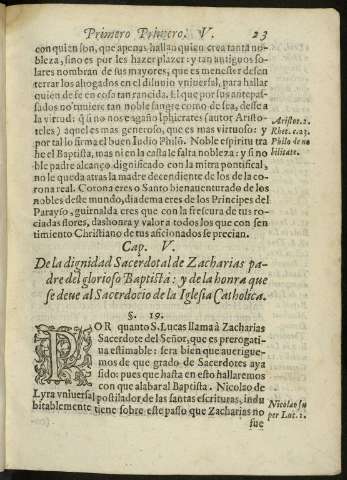 Primero Primero. V. 23
con quien son, que apenas hallan quien crea tanta no-
bleza, sino es por les hazer plazer: y tan antiguos so-
lares nombran de sus mayores, que es menester desen
terrar los ahogados en el diluuio vniuersal, para hallar
quien de fe en cosa tan rancida. El que por sus antepa-
sados no tuuiere tan noble sangre como dessea, dessee a
la virtud: q̃ si no se engaño Iphicrates (autor Aristo-
teles) aquel es mas generoso, que es mas virtuoso: y
por tal lo firma el buen Iudio Philõ. Noble espiritu tra
he el Baptista, mas ni en la casta le falta nobleza: y si no
ble padre alcanço dignificado con la mitra pontifical,
no le queda atras la madre decendiente de los de la co-
rona real. Corona eres o Santo bienauenturado de los
nobles deste mundo, diadema eres de los Principes del
Parayso, guirnalda eres que con la frescura de tus ro-
ciadas flores, das honra y valor a todos los que con sen
timiento Christiano de tus aficionados se precian.
Aristot. 2.
Rhet. c. 23.
Philo de no
bilitate.
Cap. V.
De la dignidad Sacerdotal de Zacharias pa-
dre del glorioso Baptista: y de la honra que
se deue al Sacerdocio de la Iglesia Catholica.
§. 19.
POR quanto S. Lucas llama à Zacharias
Sacerdote del Señor, que es prerogati
ua estimable: sera bien que auerigue-
mos de que grado de Sacerdotes aya
sido: pues que hasta en esto hallaremos
con que alabar al Baptista. Nicolao de
Lyra vniuersal postilador de las santas escrituras, indu
bitablemente tiene sobre este passo que Zacharias no
fue
Nicolao su
per Luc. 1.